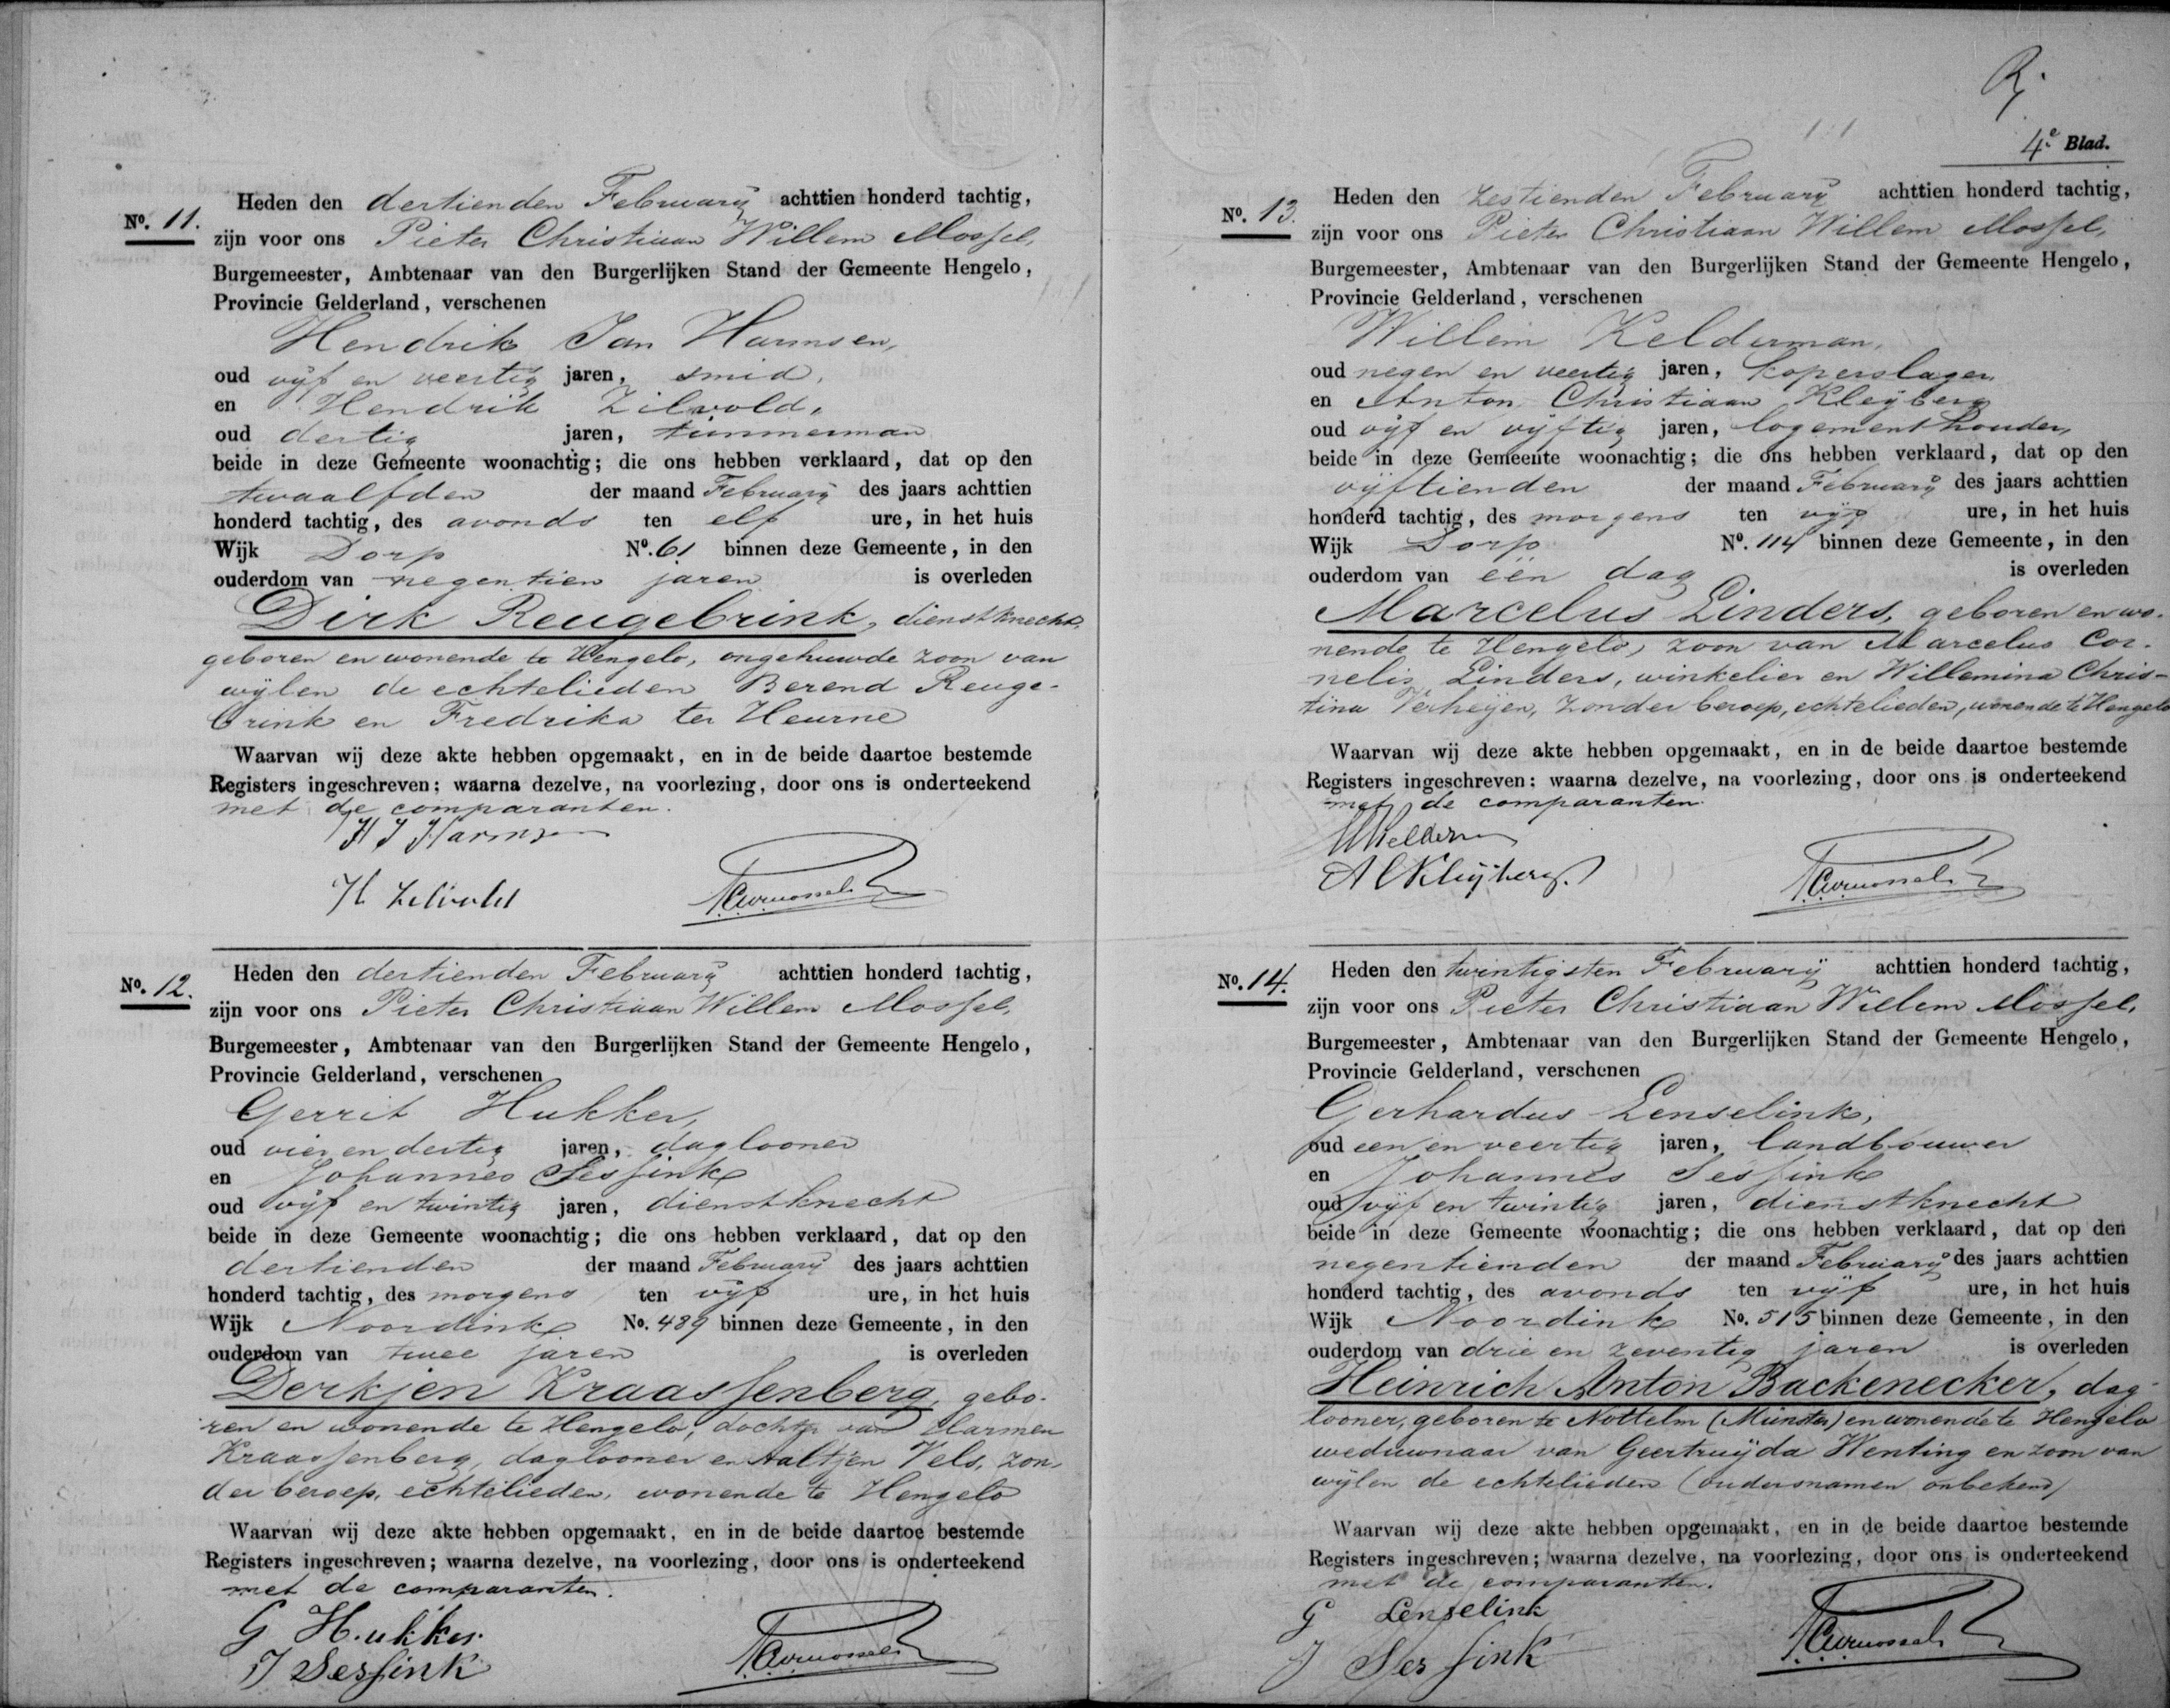 No. 11.
Heden den dertienden February achttien honderd tachtig,
zijn voor ons Pieter Christiaan Willem Mossel,
Burgemeester, Ambtenaar van den Burgerlijken Stand der Gemeente Hengelo,
Provincie Gelderland, verschenen
Hendrik Jan Harmsen,
oud vijf en veertig jaren, smid,
en Hendrik Zilvold,
oud dertig jaren, timmerman
beide in deze Gemeente woonachtig; die ons hebben verklaard, dat op den
twaalfden der maand February des jaars achttien
honderd tachtig, des avonds ten elf ure, in het huis
Wijk Dorp No. 61 binnen deze Gemeente, in den
ouderdom van negentien jaren is overleden
Dirk Reugebrink, dienstknecht,
geboren en wonende te Hengelo, ongehuwde zoon van
wijlen de echtelieden Berend Reuge-
brink en Fredrika ter Heurne
Waarvan wij deze akte hebben opgemaakt, en in de beide daartoe bestemde
Registers ingeschreven; waarna dezelve, na voorlezing, door ons is onderteekend
met de comparanten.
H J Harmsen
H Zilvold
PCWMossel
No. 12.
Heden den dertienden February achttien honderd tachtig,
zijn voor ons Pieter Christiaan Willem Mossel,
Burgemeester, Ambtenaar van den Burgerlijken Stand der Gemeente Hengelo,
Provincie Gelderland, verschenen
Gerrit Hukker,
oud vier en dertig jaren, daglooner
en Johannes Sessink
oud vijf en twintig jaren, dienstknecht
beide in deze Gemeente woonachtig; die ons hebben verklaard, dat op den
dertienden der maand February des jaars achttien
honderd tachtig, des morgens ten vijf ure, in het huis
Wijk Noordink No. 489 binnen deze Gemeente, in den
ouderdom van twee jaren is overleden
Derkjen Kraassenberg, gebo-
ren en wonende te Hengelo, dochter van Harmen
Kraassenberg, daglooner en Aaltjen Vels, zon-
der beroep, echtelieden, wonende te Hengelo
Waarvan wij deze akte hebben opgemaakt, en in de beide daartoe bestemde
Registers ingeschreven; waarna dezelve, na voorlezing, door ons is onderteekend
met de comparanten.
G Hukker
J Sessink
PCWMossel
4e Blad.
No. 13.
Heden den zestienden February achttien honderd tachtig,
zijn voor ons Pieter Christiaan Willem Mossel,
Burgemeester, Ambtenaar van den Burgerlijken Stand der Gemeente Hengelo,
Provincie Gelderland, verschenen
Willem Kelderman,
oud negen en veertig jaren, koperslager
en Anton Christiaan Kleyberg
oud vijf en vijftig jaren, logementhouder,
beide in deze Gemeente woonachtig; die ons hebben verklaard, dat op den
vijftienden der maand February des jaars achttien
honderd tachtig, des morgens ten vijf ure, in het huis
Wijk Dorp No. 114 binnen deze Gemeente, in den
ouderdom van één dag is overleden
Marcelus Linders, geboren en wo-
nende te Hengelo, zoon van Marcelus Cor-
nelis Linders, winkelier en Willemina Chris-
tina Verheijen, zonder beroep, echtelieden, wonende te Hengelo
Waarvan wij deze akte hebben opgemaakt, en in de beide daartoe bestemde
Registers ingeschreven; waarna dezelve, na voorlezing, door ons is onderteekend
met de comparanten.
A C Kluijberg.
PCWMossel
No. 14.
Heden den twintigsten February achttien honderd tachtig,
zijn voor ons Pieter Christiaan Willem Mossel,
Burgemeester, Ambtenaar van den Burgerlijken Stand der Gemeente Hengelo,
Provincie Gelderland, verschenen
Gerhardus Lenselink,
oud een en veertig jaren, landbouwer
en Johannes Sessink
oud vijf en twintig jaren, dienstknecht
beide in deze Gemeente woonachtig; die ons hebben verklaard, dat op den
negentienden der maand February des jaars achttien
honderd tachtig, des avonds ten vijf ure, in het huis
Wijk Noordink No. 515 binnen deze Gemeente, in den
ouderdom van drie en zeventig jaren is overleden
Heinrich Anton Backenecker, dag-
looner, geboren te Nottelm (Munster) en wonende te Hengelo
weduwnaar van Geertruijda Wenting en zoon van
wijlen de echtelieden (oudersnamen onbekend)
Waarvan wij deze akte hebben opgemaakt, en in de beide daartoe bestemde
Registers ingeschreven; waarna dezelve, na voorlezing, door ons is onderteekend
met de comparanten.
G Lenselink
J Sessink
PCWMossel